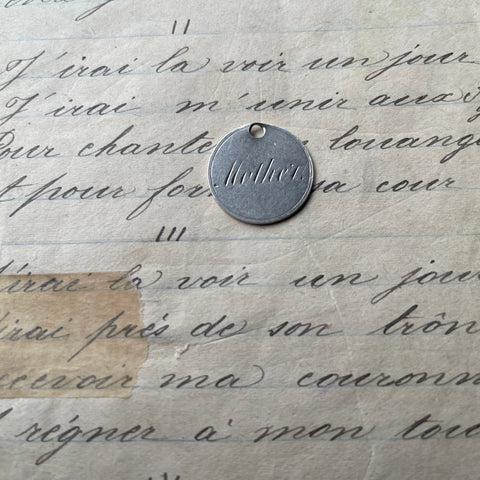 II
J'irai la voir un jour
J'irai m'unir aux
Pour chante louang
t pour for sa cour
Mother.
III
J'irai la voir un jou
irai près de son trôn
ecevoir ma couronn
t régner à mon tou